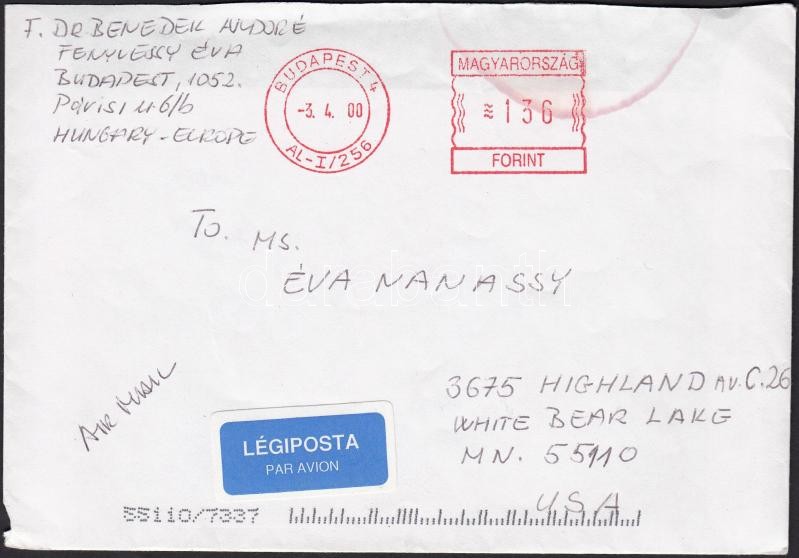 F. DR BENEDEK ANDORÉ
FENYVESSY ÉVA
BUDAPEST, 1052.
Párisi u 6/b
HUNGARY - EUROPE
BUDAPEST 4
-3. 4. 00
AL-I/256
MAGYARORSZÁG
≈136
FORINT
To. MS.
ÉVA NANASSY
darabanth
3675 HIGHLAND AV. C. 26
WHITE BEAR LAKE
MN. 55110
USA
AIR MAIL
LÉGIPOSTA
PAR AVION
55110/7337